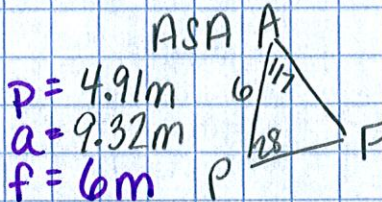 ASA A
p = 4.91m
a = 9.32m
f = 6m
6
117
28
P
F